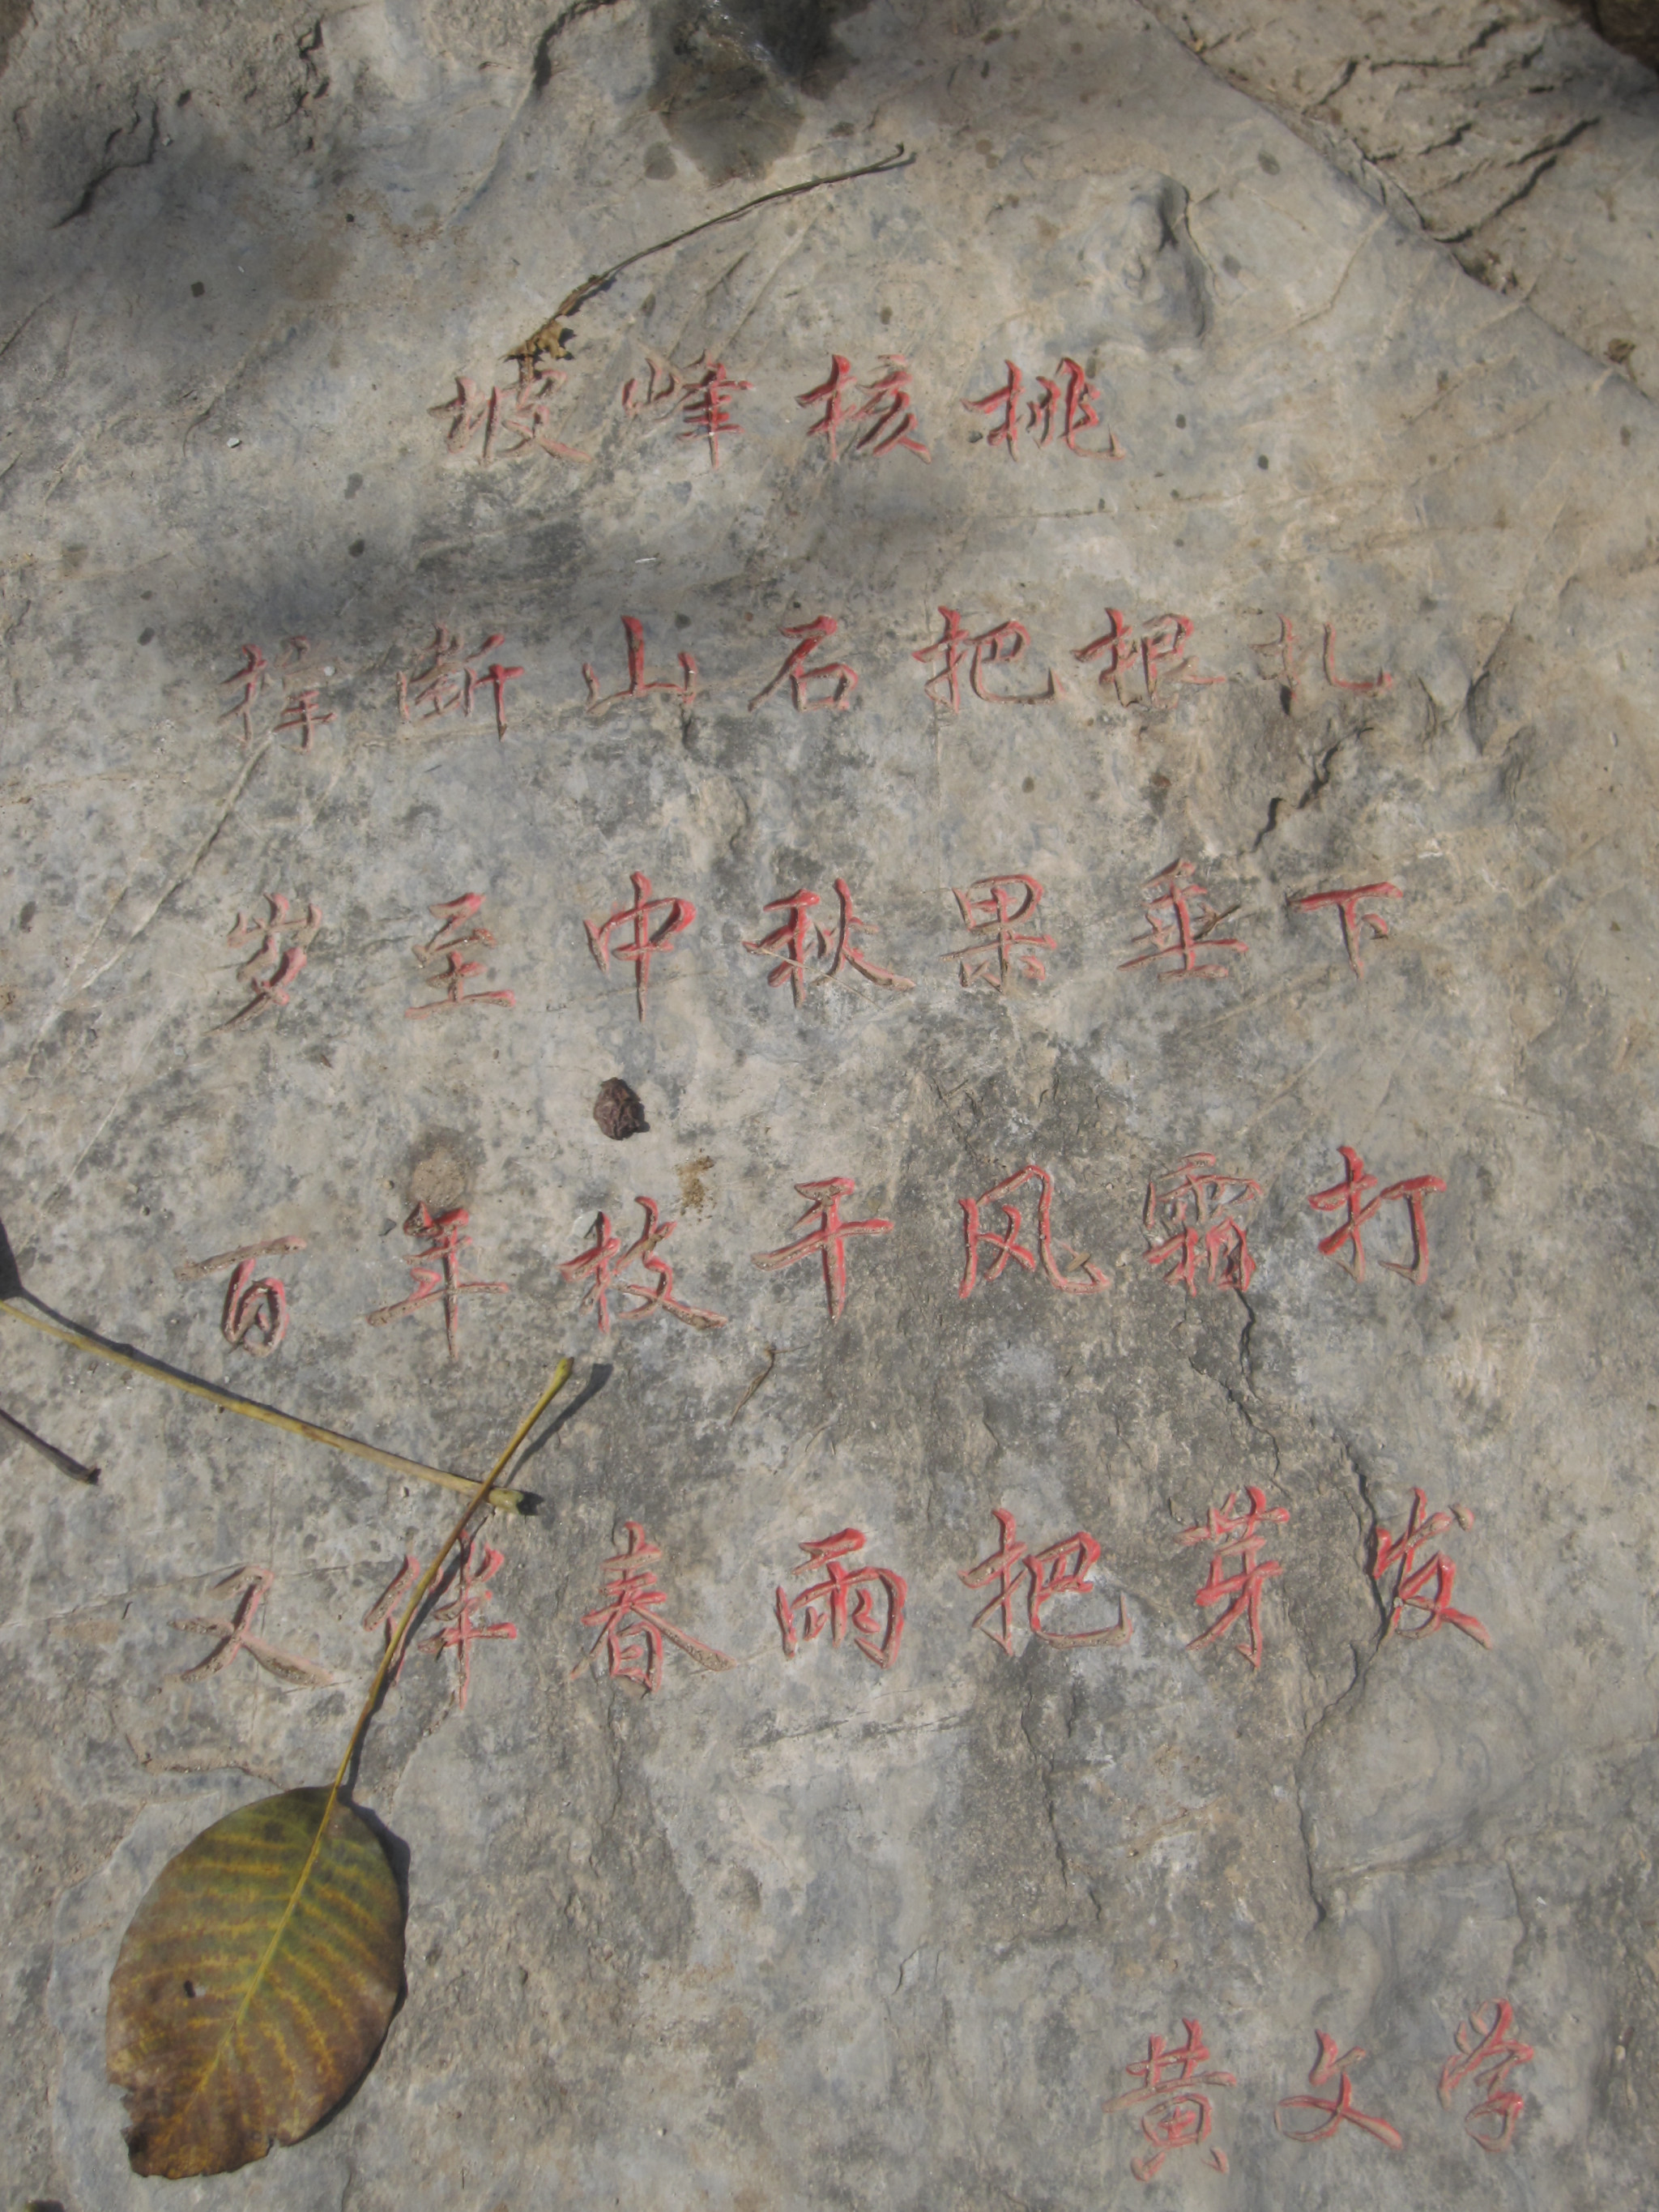 坡峰核桃
择断山石把根扎
岁至中秋果垂下
百年枝干风霜打
又伴春雨把芽发
黄文学